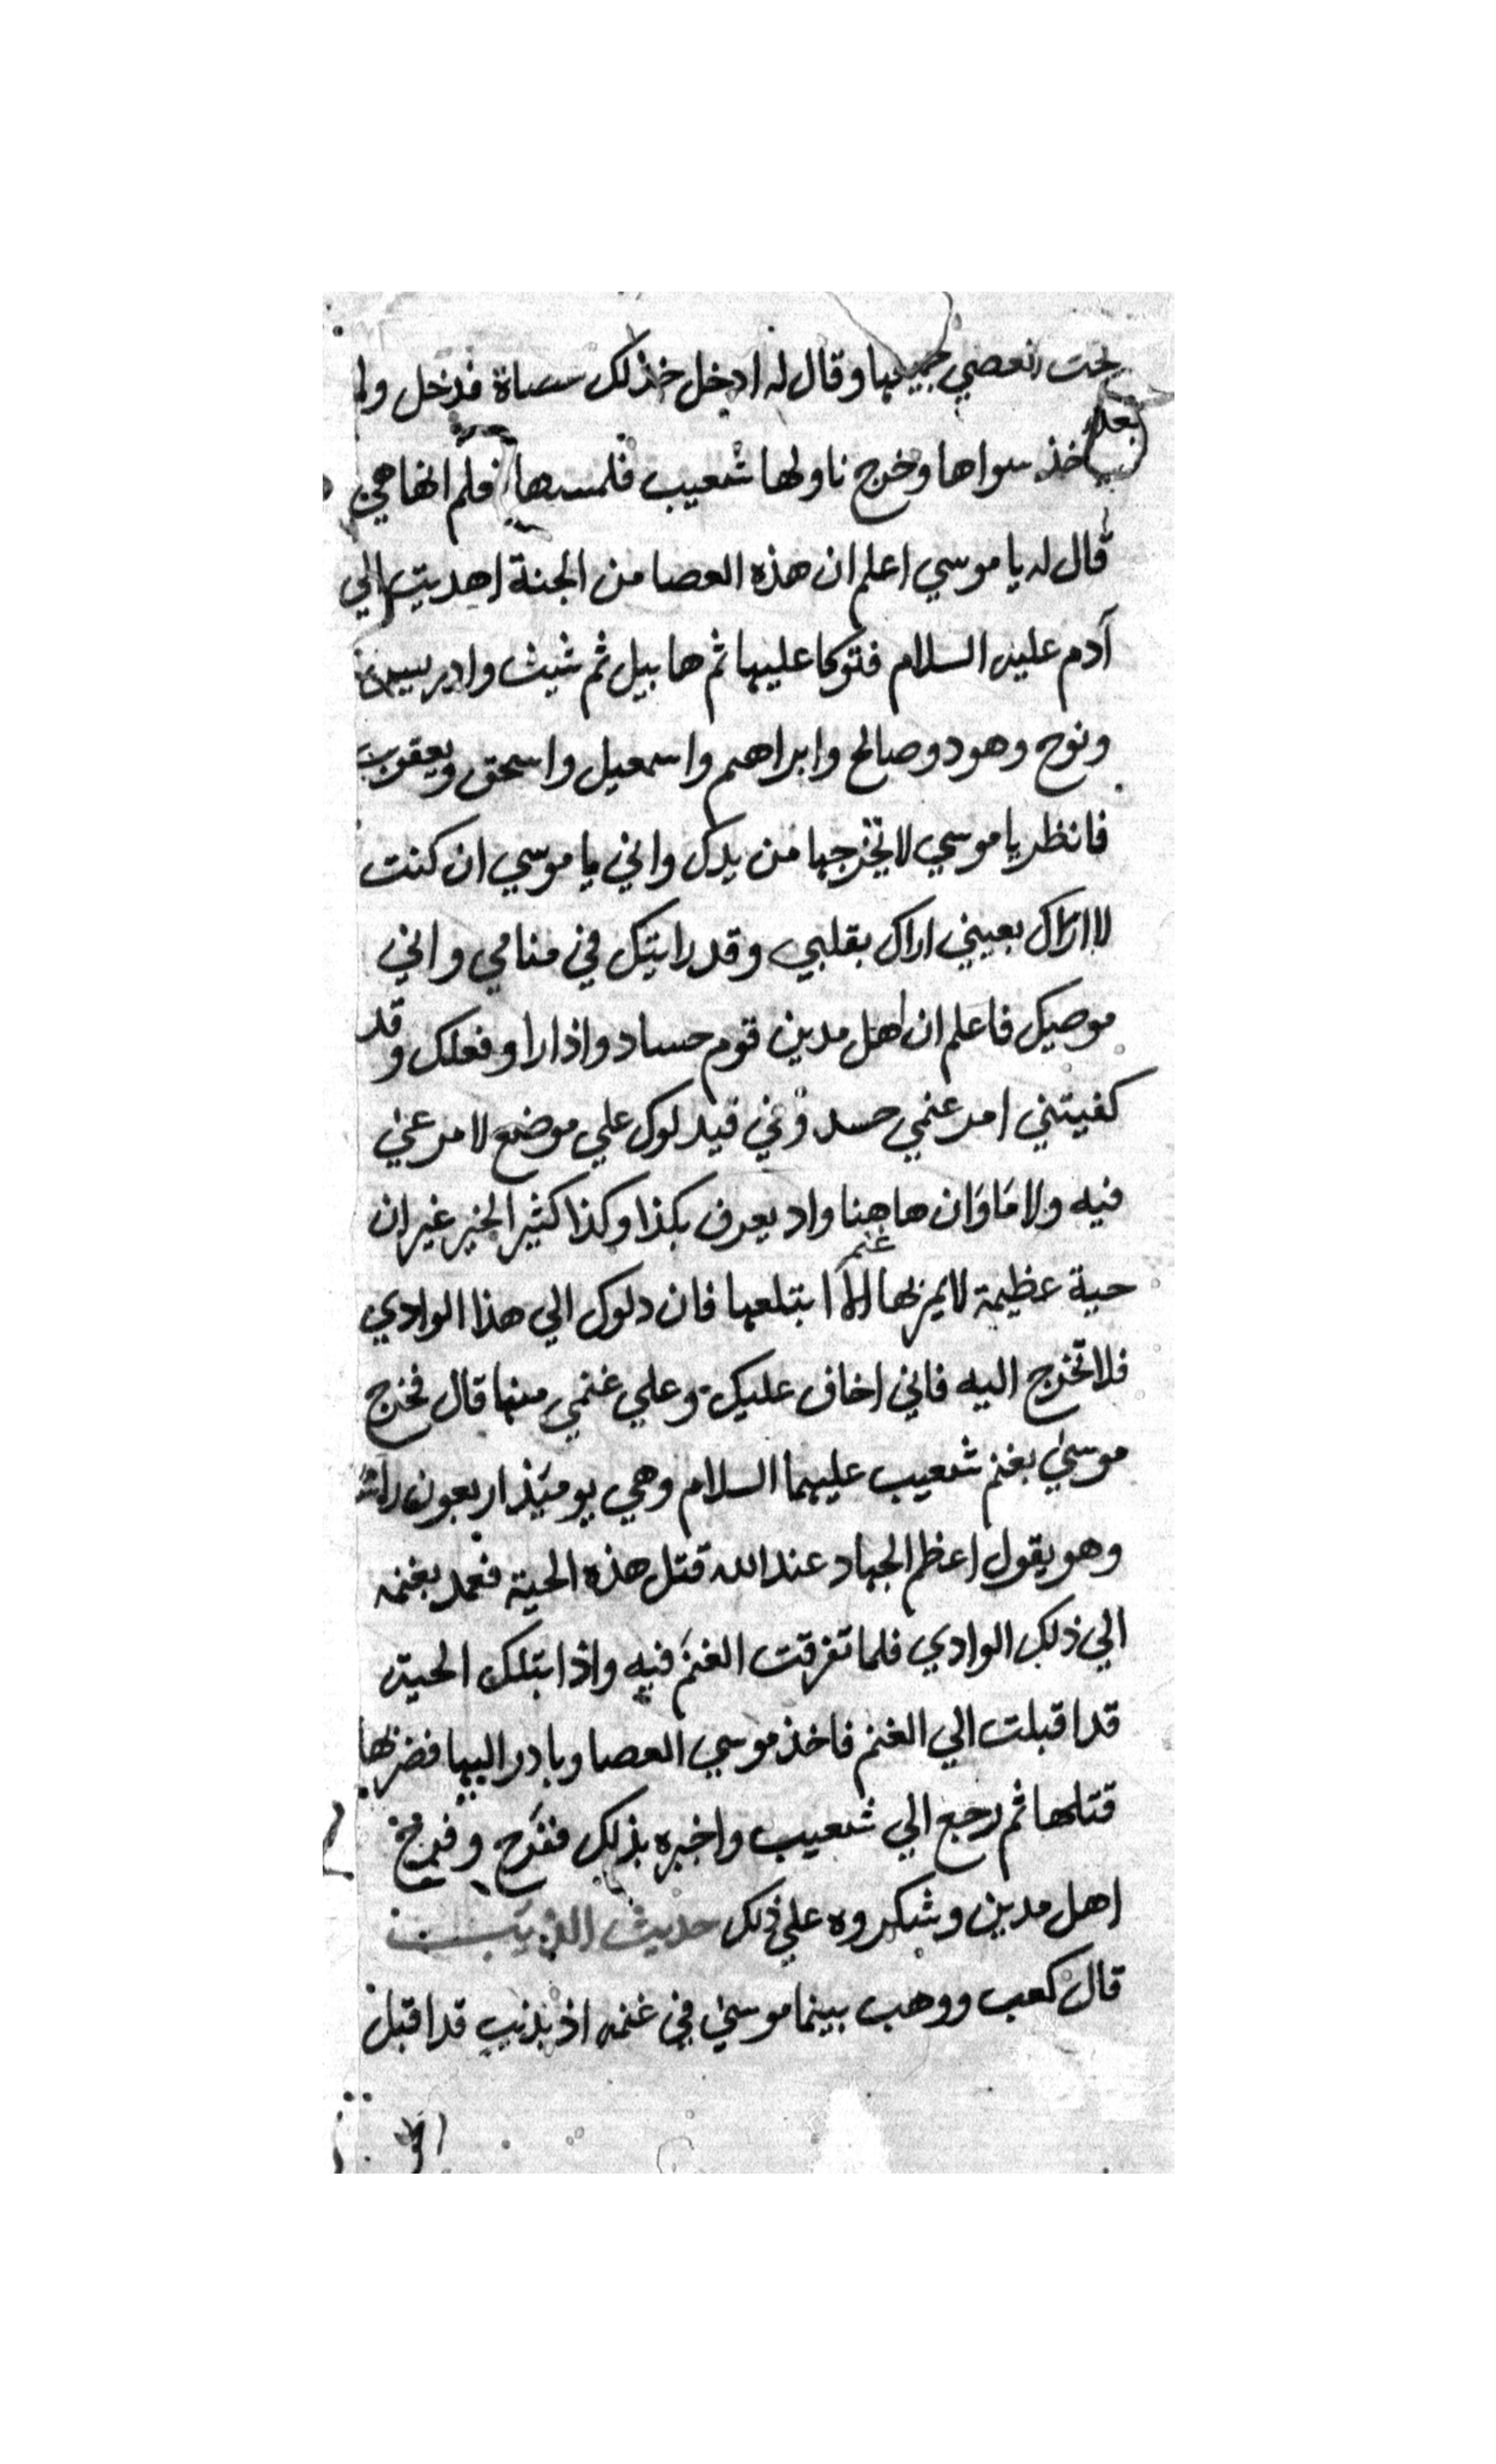 تحت العصي جميعها وقال له ادخل خذ لك عصاة فدخل ولم
ياخذ سواها وخرج ناولها شعيب فلمسها فلم انها هي
قال له يا موسي اعلم ان هذه العصا من الجنة اهديت الي
آدم عليه السلام فتوكا عليها ثم هابيل ثم شيث وادريس
ونوح وهود وصالح وابراهيم واسمعيل واسحق ويعقوب
فانظر يا موسي لا تخرجها من يدك واني يا موسي ان كنت
لا اراك بعيني اراك بقلبي وقد رايتك في منامي واني
موصيك فاعلم ان اهل مدين قوم حساد واذا راو فعلك وقد
كفيتني امر غنمي حسدوني فيدلوك علي موضع لا مرعي
فيه ولا ما وان هاهنا واد يعرف بكذا وكذا كثير الخير غير ان
حية عظيمة لا يمر بها غنم الا ابتلعها فان دلوك الي هذا الوادي
فلا تخرج اليه فاني اخاف عليك وعلي غنمي منها قال فخرج
موسي بغنم شعيب عليهما السلام وهي يوميذ اربعون راس
وهو يقول اعظم الجهاد عند الله قتل هذه الحية فعمد بغنمه
الي ذلك الوادي فلما تفرقت الغنم فيه واذا بتلك الحية
قد اقبلت الي الغنم فاخذ موسي العصا وبادر اليها فضربها
قتلها ثم رجع الي شعيب واخبره بذلك ففرح وفرح
اهل مدين وشكروه علي ذلك حديث الذيب
قال كعب ووهب بينما موسي في غنمه اذ بذيب قد اقبل